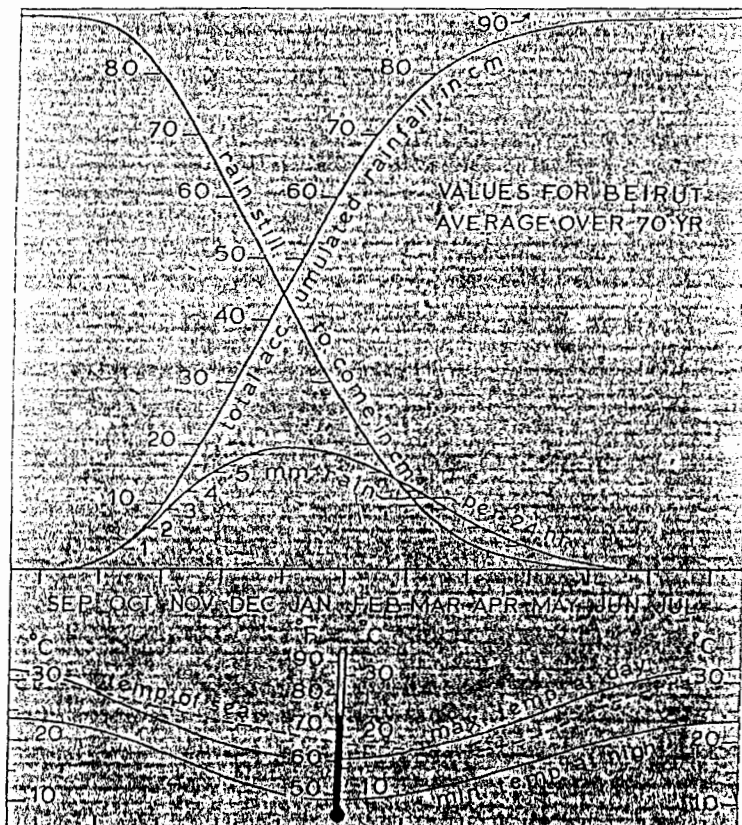 90
80
80
70
70
60
60
50
40
30
20
10
rain still to come in cm
total accumulated rainfall in cm
VALUES FOR BEIRUT
AVERAGE OVER 70 YR
1 2 3 4 5 mm rain per 24 hr
SEP OCT NOV DEC JAN FEB MAR APR MAY JUN JUL
°C °F °C °C
30 90 30 30
80
20 70 20 20
60
10 50 10 10
temp. of sea
max. temp. at day
min. temp. at night